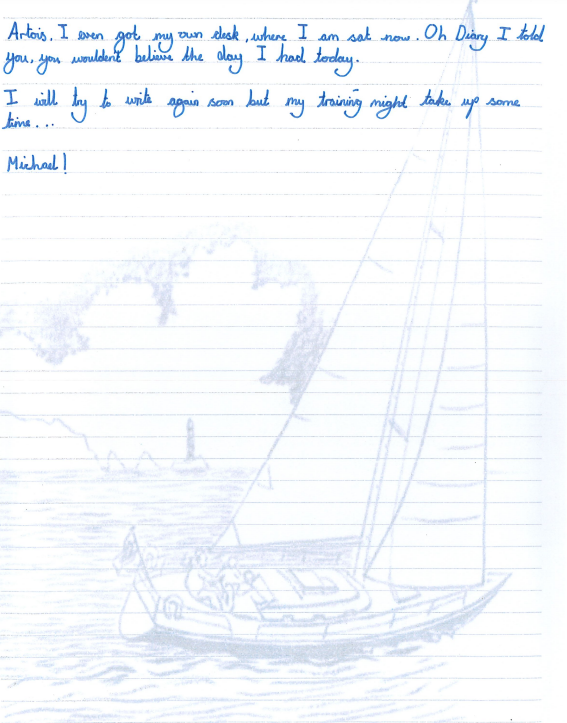 Artois. I even got my own desk, where I am sat now. Oh Diary I told
you, you wouldn't believe the day I had today.
I will try to write again soon but my training might take up some
time...
Michael!